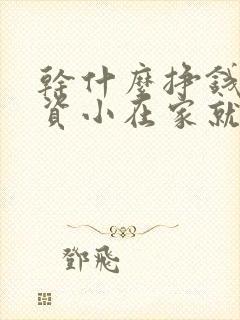 幹什麼掙錢
資小在家就
鄧飛